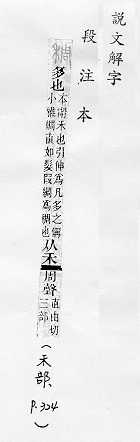 說文解字
段注本
稠
多也
本謂禾也引伸爲凡多之偁
小雅綢直如髮叚綢爲稠也
从禾
周聲
直由切
三部
(禾部、P.324)